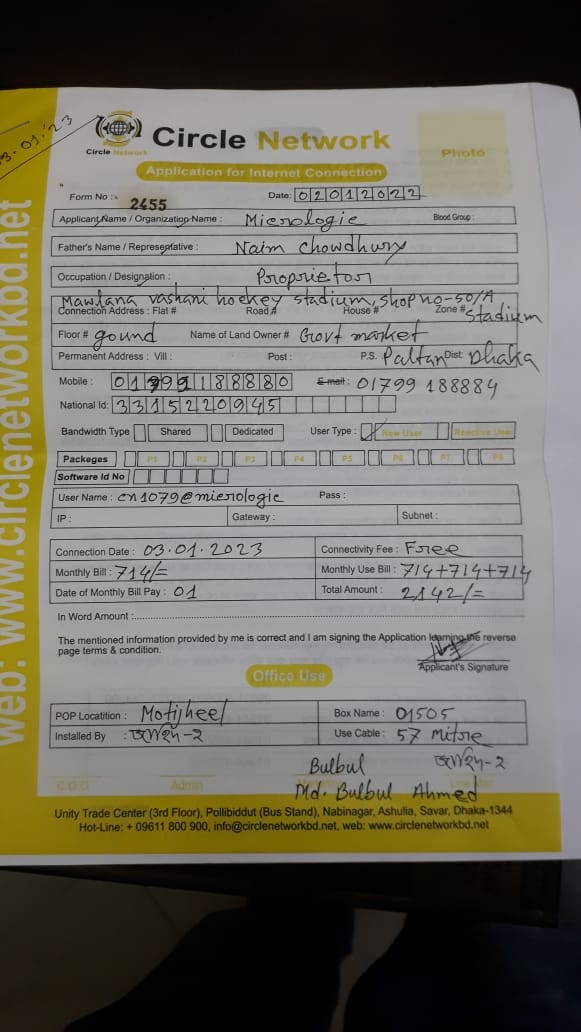 03.01.'23
Circle Network
Circle Network
Photo
Application for Internet Connection
Form No : 2455 Date: 02012022
Applicant Name / Organization Name : Micrologie Blood Group :
Father's Name / Represetative : Naim Chowdhury
Occupation / Designation : Proprietor
Mawlana vashani hockey stadium, shop no-50/A
Connection Address : Flat # Road # House # Zone # Stadium
Floor # gound Name of Land Owner # Govt market
Permanent Address : Vill : Post : P.S. Paltan Dist: Dhaka
Mobile : E-mail : 01799 188884
National Id: 3315220945
Bandwidth Type Shared Dedicated User Type : New User Reactive User
Packeges P1 P2 P3 P4 P5 P6 P7 P8
Software Id No
User Name : cn1079@micrologic Pass :
IP : Gateway : Subnet :
Connection Date : 03.01.2023 Connectivity Fee : Free
Monthly Bill : 714/= Monthly Use Bill : 714+714+714
Date of Monthly Bill Pay : 01 Total Amount : 2142/=
In Word Amount :
The mentioned information provided by me is correct and I am signing the Application learning the reverse
page terms & condition.
Applicant's Signature
Office Use
POP Locatition : Motijheel Box Name : 01505
Installed By : Use Cable : 57 mitre
Bulbul
Md. Bulbul Ahmed
C.E.O Admin
Unity Trade Center (3rd Floor), Pollibiddut (Bus Stand), Nabinagar, Ashulia, Savar, Dhaka-1344
Hot-Line: + 09611 800 900, info@circlenetworkbd.net, web: www.circlenetworkbd.net
web: www.circlenetworkbd.net